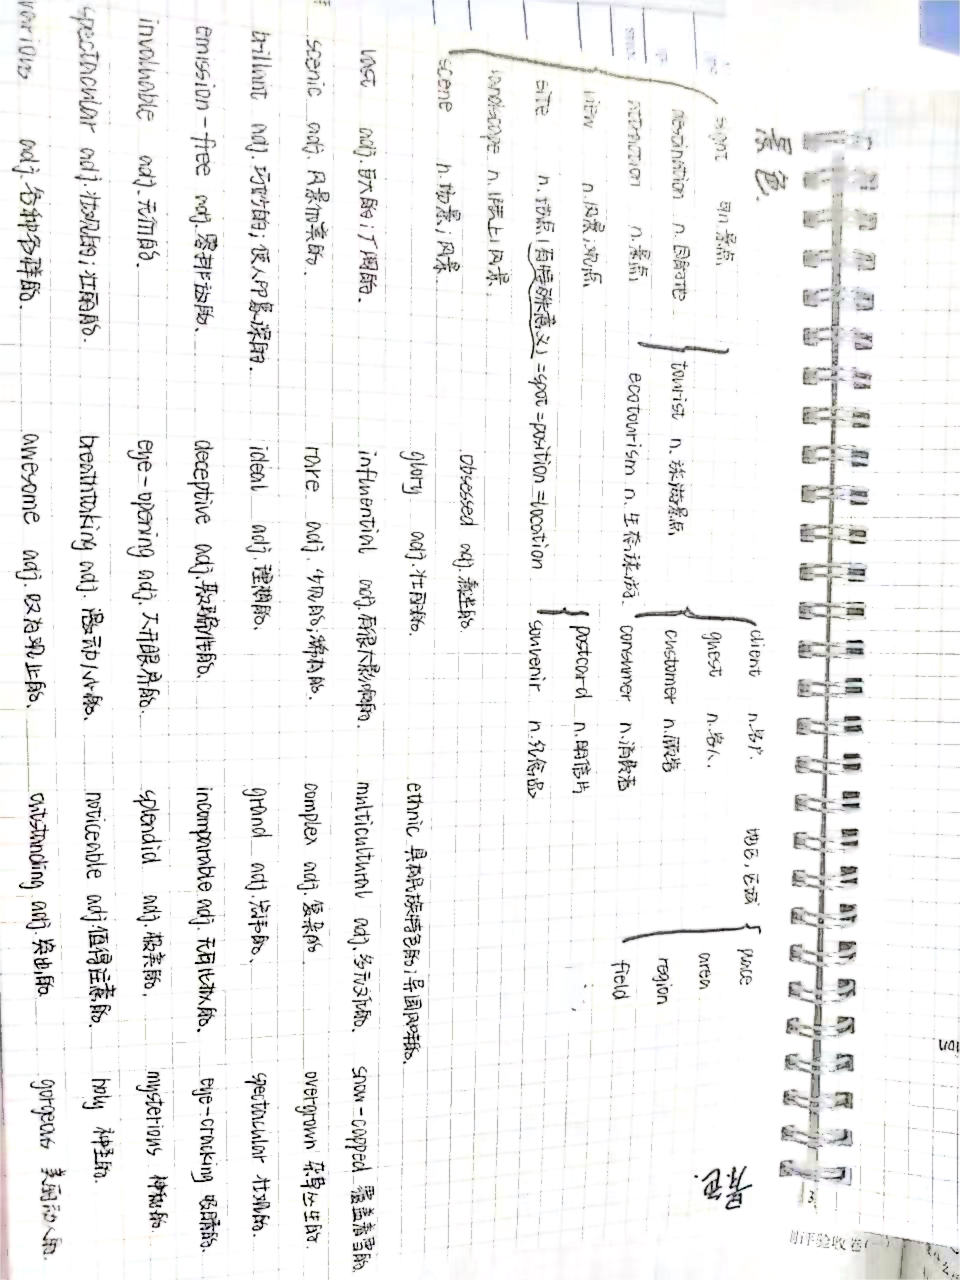 景色.
sight 可n.景点.
destination n.目的地
attraction n.景点.
view n.风景;观点
site n.地点(有特殊意义)=spot=position=location
landscape n.(陆上)风景.
scene n.场景;风景.
tourist n.旅游景点
ecotourism n.生态旅游.
client n.客户.
guest n.客人.
customer n.顾客
consumer n.消费者
postcard n.明信片
souvenir n.纪念品
地区,区域
place
area
region
field
景色.
obsessed adj.痴迷的.
glory adj.壮丽的.
ethnic 具有民族特色的;异国风味的.
vast adj.巨大的;广阔的.
influential adj.有很大影响的.
multicultural adj.多元文化的.
snow-capped 覆盖着雪的.
scenic adj.风景优美的.
rare adj.少见的;稀有的.
complex adj.复杂的
overgrown 杂草丛生的.
brilliant adj.巧妙的;使人印象深的.
ideal adj.理想的.
grand adj.宏伟的.
spectacular 壮观的.
emission-free adj.零排放的.
deceptive adj.欺骗性的.
incomparable adj.无可比拟的.
eye-cracking 吸睛的.
invaluable adj.无价的.
eye-opening adj.大开眼界的.
splendid adj.极美的.
mysterious 神秘的.
spectacular adj.壮观的;壮丽的.
breathtaking adj.激动人心的.
noticeable adj.值得注意的.
holy 神圣的.
various adj.各种各样的.
awesome adj.叹为观止的.
outstanding adj.突出的.
gorgeous 美丽动人的.
3
评验收卷(一)